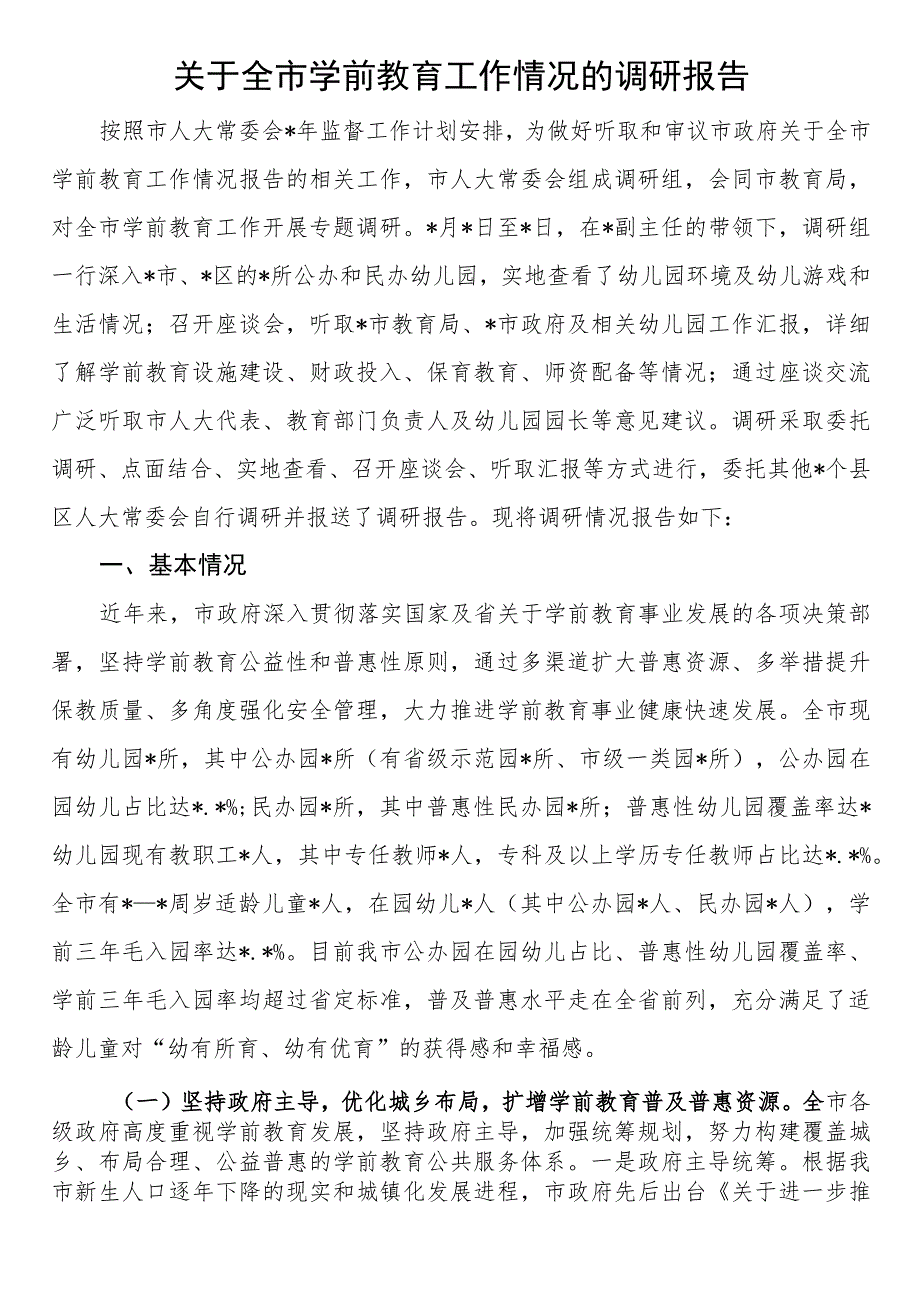 关于全市学前教育工作情况的调研报告
按照市人大常委会*年监督工作计划安排，为做好听取和审议市政府关于全市
学前教育工作情况报告的相关工作，市人大常委会组成调研组，会同市教育局，
对全市学前教育工作开展专题调研。*月*日至*日，在*副主任的带领下，调研组
一行深入*市、*区的*所公办和民办幼儿园，实地查看了幼儿园环境及幼儿游戏和
生活情况；召开座谈会，听取*市教育局、*市政府及相关幼儿园工作汇报，详细
了解学前教育设施建设、财政投入、保育教育、师资配备等情况；通过座谈交流
广泛听取市人大代表、教育部门负责人及幼儿园园长等意见建议。调研采取委托
调研、点面结合、实地查看、召开座谈会、听取汇报等方式进行，委托其他*个县
区人大常委会自行调研并报送了调研报告。现将调研情况报告如下：
一、基本情况
近年来，市政府深入贯彻落实国家及省关于学前教育事业发展的各项决策部
署，坚持学前教育公益性和普惠性原则，通过多渠道扩大普惠资源、多举措提升
保教质量、多角度强化安全管理，大力推进学前教育事业健康快速发展。全市现
有幼儿园*所，其中公办园*所（有省级示范园*所、市级一类园*所），公办园在
园幼儿占比达*.*%;民办园*所，其中普惠性民办园*所；普惠性幼儿园覆盖率达*
幼儿园现有教职工*人，其中专任教师*人，专科及以上学历专任教师占比达*.*%。
全市有*—*周岁适龄儿童*人，在园幼儿*人（其中公办园*人、民办园*人），学
前三年毛入园率达*.*%。目前我市公办园在园幼儿占比、普惠性幼儿园覆盖率、
学前三年毛入园率均超过省定标准，普及普惠水平走在全省前列，充分满足了适
龄儿童对“幼有所育、幼有优育”的获得感和幸福感。
（一）坚持政府主导，优化城乡布局，扩增学前教育普及普惠资源。全市各
级政府高度重视学前教育发展，坚持政府主导，加强统筹规划，努力构建覆盖城
乡、布局合理、公益普惠的学前教育公共服务体系。一是政府主导统筹。根据我
市新生人口逐年下降的现实和城镇化发展进程，市政府先后出台《关于进一步推